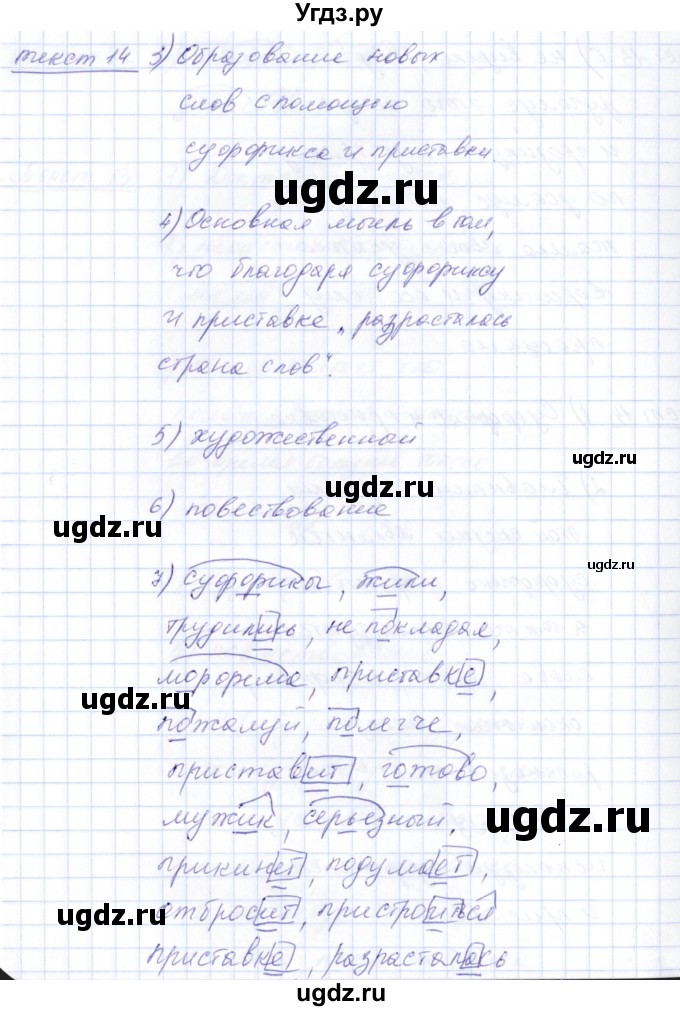 Угдз.ру
текст 14 3) Образование новых
слов с помощью
суффикса и приставки.
ugdz.ru
4) Основная мысль в том,
что благодаря суффиксу
и приставке „разрасталась
страна слов".
5) художественный
ugdz.ru
6) повествование
ugdz.ru
ugdz.ru
7) суффиксы, жили,
трудились, не покладая,
морфема, приставке,
ugdz.ru
пожалуй, полегче,
приставит, готово,
мужик, серьезный,
ugdz.ru
прикинет, подумает,
отбросит, пристроиться
ugdz.ru
приставке, разрасталась
ugdz.ru